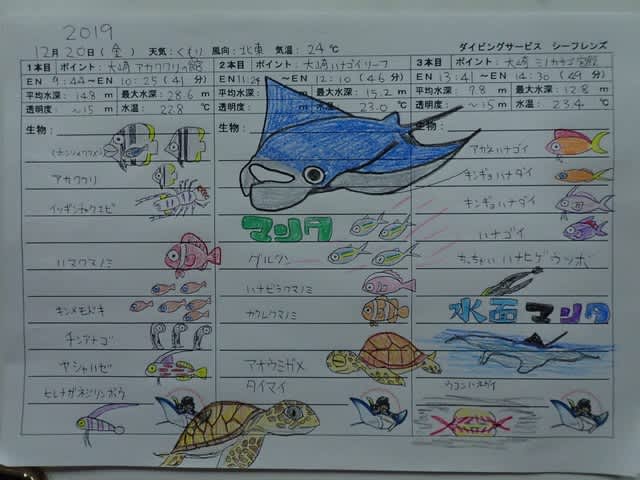 2019
12月20日(金) 天気:くもり 風向:北東 気温:24℃ ダイビングサービス シーフレンズ
1本目 ポイント:大崎アカククリの館
EN 9:44~EN 10:25(41分)
平均水深:14.8 m 最大水深:28.6 m
透明度:~15 m 水温:22.8 ℃
生物:
アカククリ
イソギンチャクエビ
ハマクマノミ
キンメモドキ
チンアナゴ
ヤシャハゼ
ヒレナガネジリンボウ
2本目 ポイント:大崎ハナゴイリーフ
EN 11:24~EN 12:10(46分)
平均水深: 最大水深:15.2 m
透明度: 23.0 ℃
生物:
マンタ
グルクン
ハナビラクマノミ
カクレクマノミ
アオウミガメ
タイマイ
3本目 ポイント:大崎ミノカサゴ宮殿
EN 13:41~EN 14:30(49分)
平均水深:7.8 m 最大水深:12.8 m
透明度:~15 m 水温:23.4 ℃
生物:
アカネハナゴイ
キンギョハナダイ
キンギョハナダイ
ハナゴイ
ちっちゃいハナヒゲウツボ
水面マンタ
ウコンハネガイ